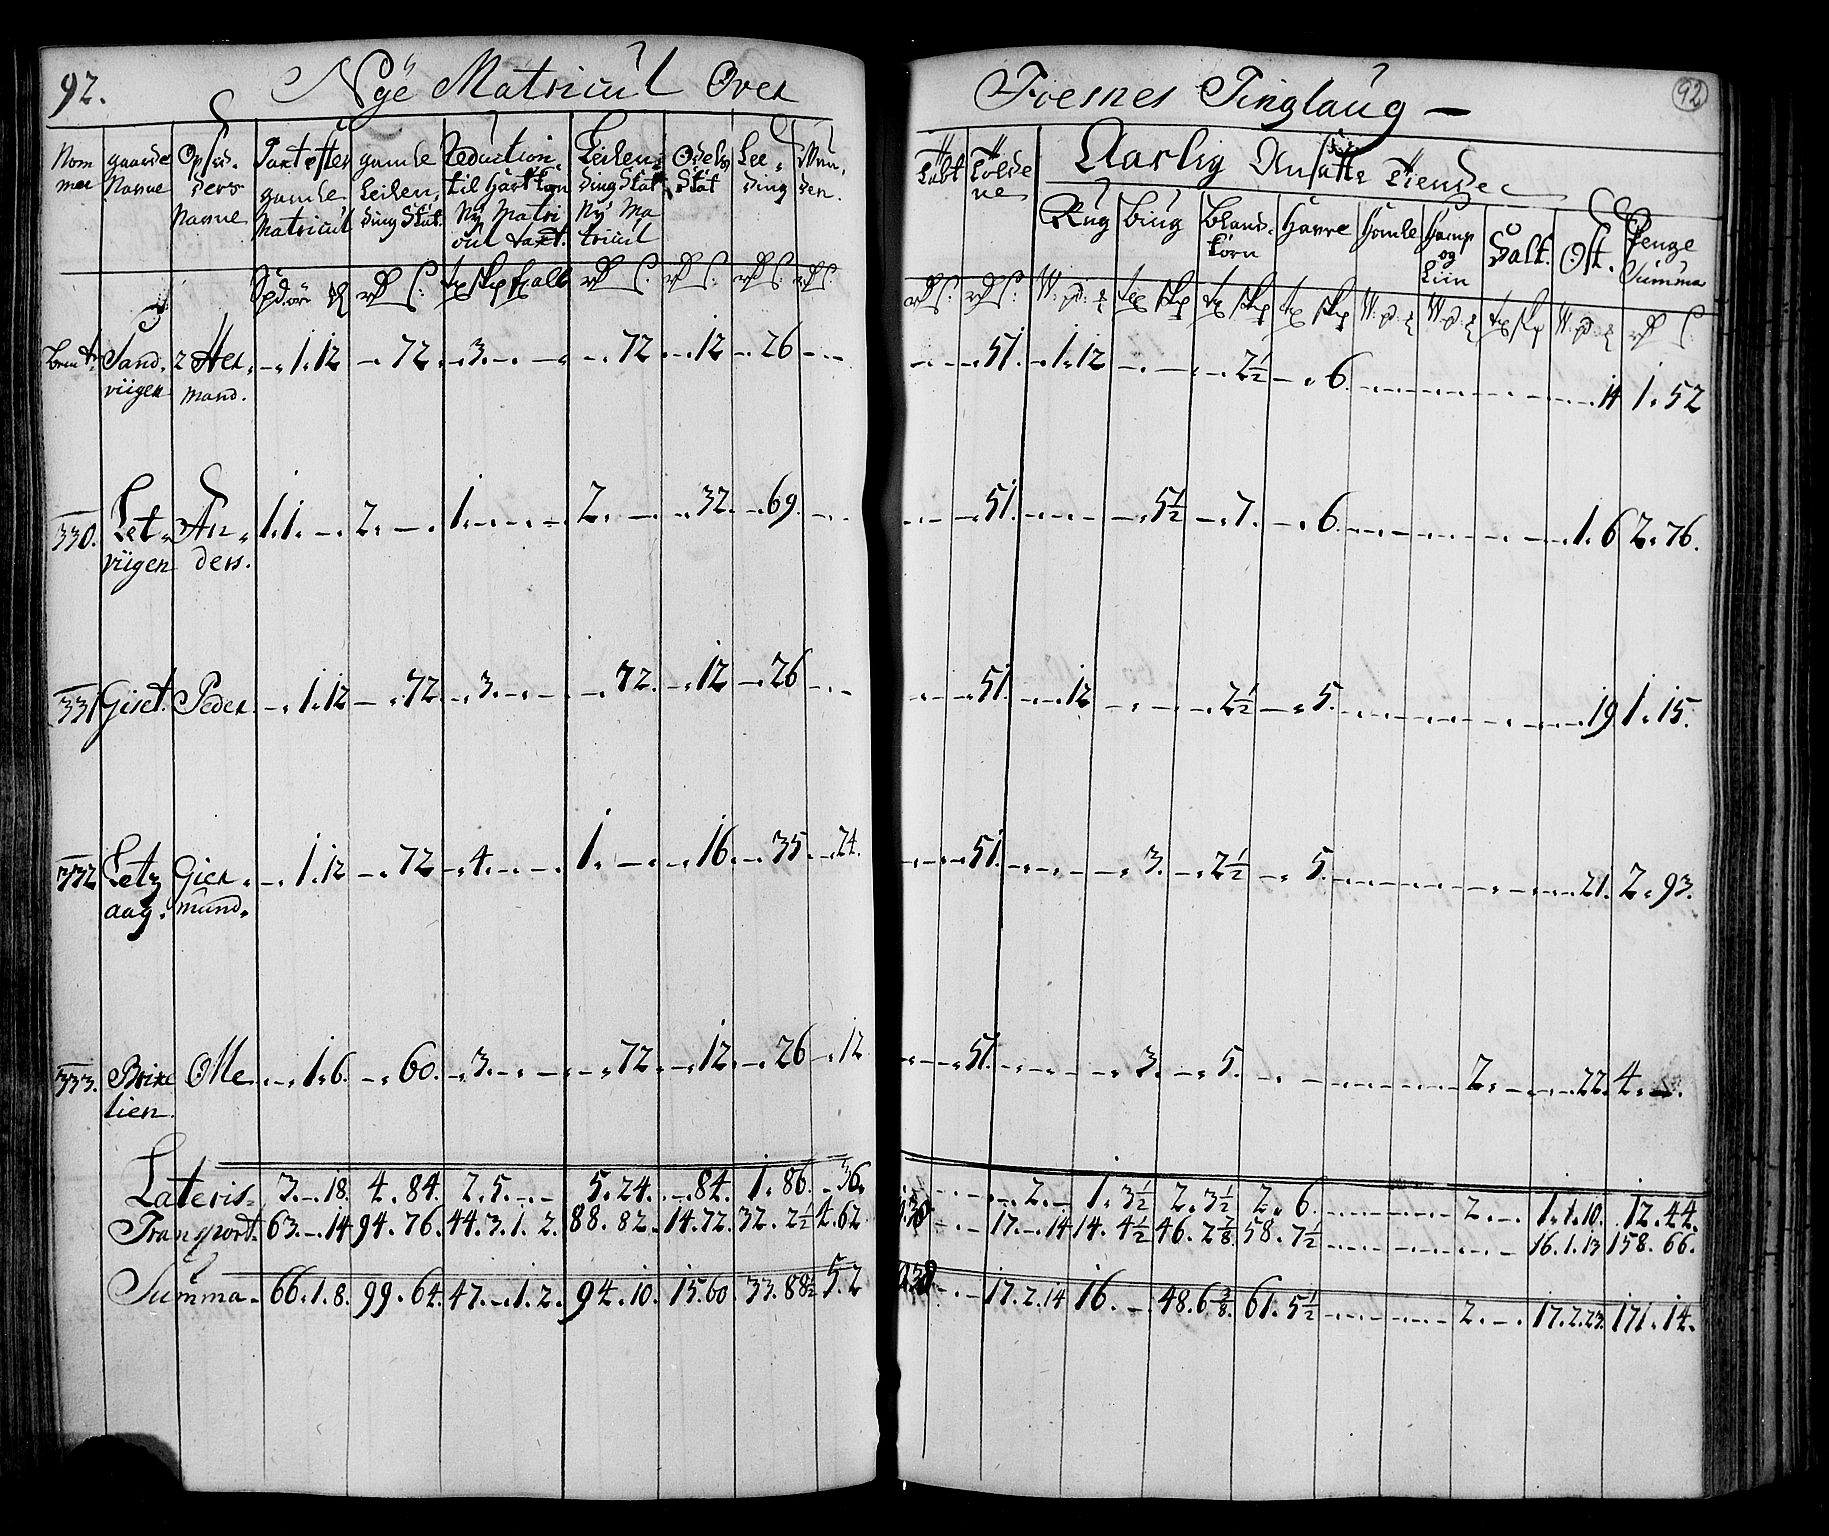 92. Nye Matricul Over Foesnes Tinglaug — 92
Nom mer | gaarde Nafne | Opsid- ders Nafne | Taxt efter gamle Matricul | gamle Leilen- ding Skat | Reduction til Hartkorn Ny Matri cul taxt. | Leilen- ding Skat Ny Ma tricul | Odels Skat | Lee- ding | Mun- den. | Tolde ne | Aarlig Ansatte Tiende
Rug | Biug | Bland- korn | Havre | Homle | Hamp og Liin | Salt. | Ost. | Penge Summa
Sand- viigen | 2 Her- mand. | -. 1. 12 | -. 72. | -. 3. -. - | -. 72 | -. 12 | -. 26 | -. - | -. - | -. 51. | -. 1. 12 | -. - | -. 2½ | -. 6. | 14 | 1. 52
330. | Let- viigen | An- ders. | 1. 1. -. | 2. -. | 1. -. -. - | 2. -. | -. 32. | -. 69. | -. - | -. - | -. 51. | -. -. - | -. 5½ | -. 7. | -. 6. | 1. 6 | 2. 76.
331 | Giset. | Peder. | -. 1. 12 | -. 72 | -. 3. -. - | -. 72. | -. 12 | -. 26 | -. - | -. - | -. 51. | -. -. 12 | -. - | -. 2½ | -. 5. | 19 | 1. 15.
332 | Letz aag. | Gier- mund. | -. 1. 12 | -. 72 | -. 4. -. - | 1. -. | -. 16. | -. 35 | -. 24. | -. - | -. 51. | -. -. - | -. 3. | -. 2½ | -. 5. | 21. | 2. 93.
333. | Brixe lien. | Ole. | -. 1. 6. | -. 60. | -. 3. -. - | -. 72. | -. 12. | -. 26 | -. 12 | -. - | -. 51. | -. -. - | -. 3. | -. 5. | -. - | 2. -. | 22. | 4. -.
Lateris- | 3. -. 18. | 4. 84. | 2. 5. -. - | 5. 24. | -. 84. | 1. 86. | -. 36. | -. 2. -. | 1. 3½ | 2. 3½ | 2. 6. | 2. -. | 1. 1. 10. | 12. 44.
Transport. | 63. -. 14 | 94. 76. | 44. 3. 1. 2. | 88. 82. | 14. 72. | 32. 2½ | 4. 62. | 17. -. 14 | 14. 4½ | 46. 2⅞ | 58. 7½ | 16. 1. 13 | 158. 66.
Summa. | 66. 1. 8. | 99. 64. | 47. -. 1. 2. | 94. 10. | 15. 60. | 33. 88½ | 5. 2 | 17. 2. 14 | 16. -. | 48. 6⅜. | 61. 5½ | 2. -. | 17. 2. 23. | 171. 14.